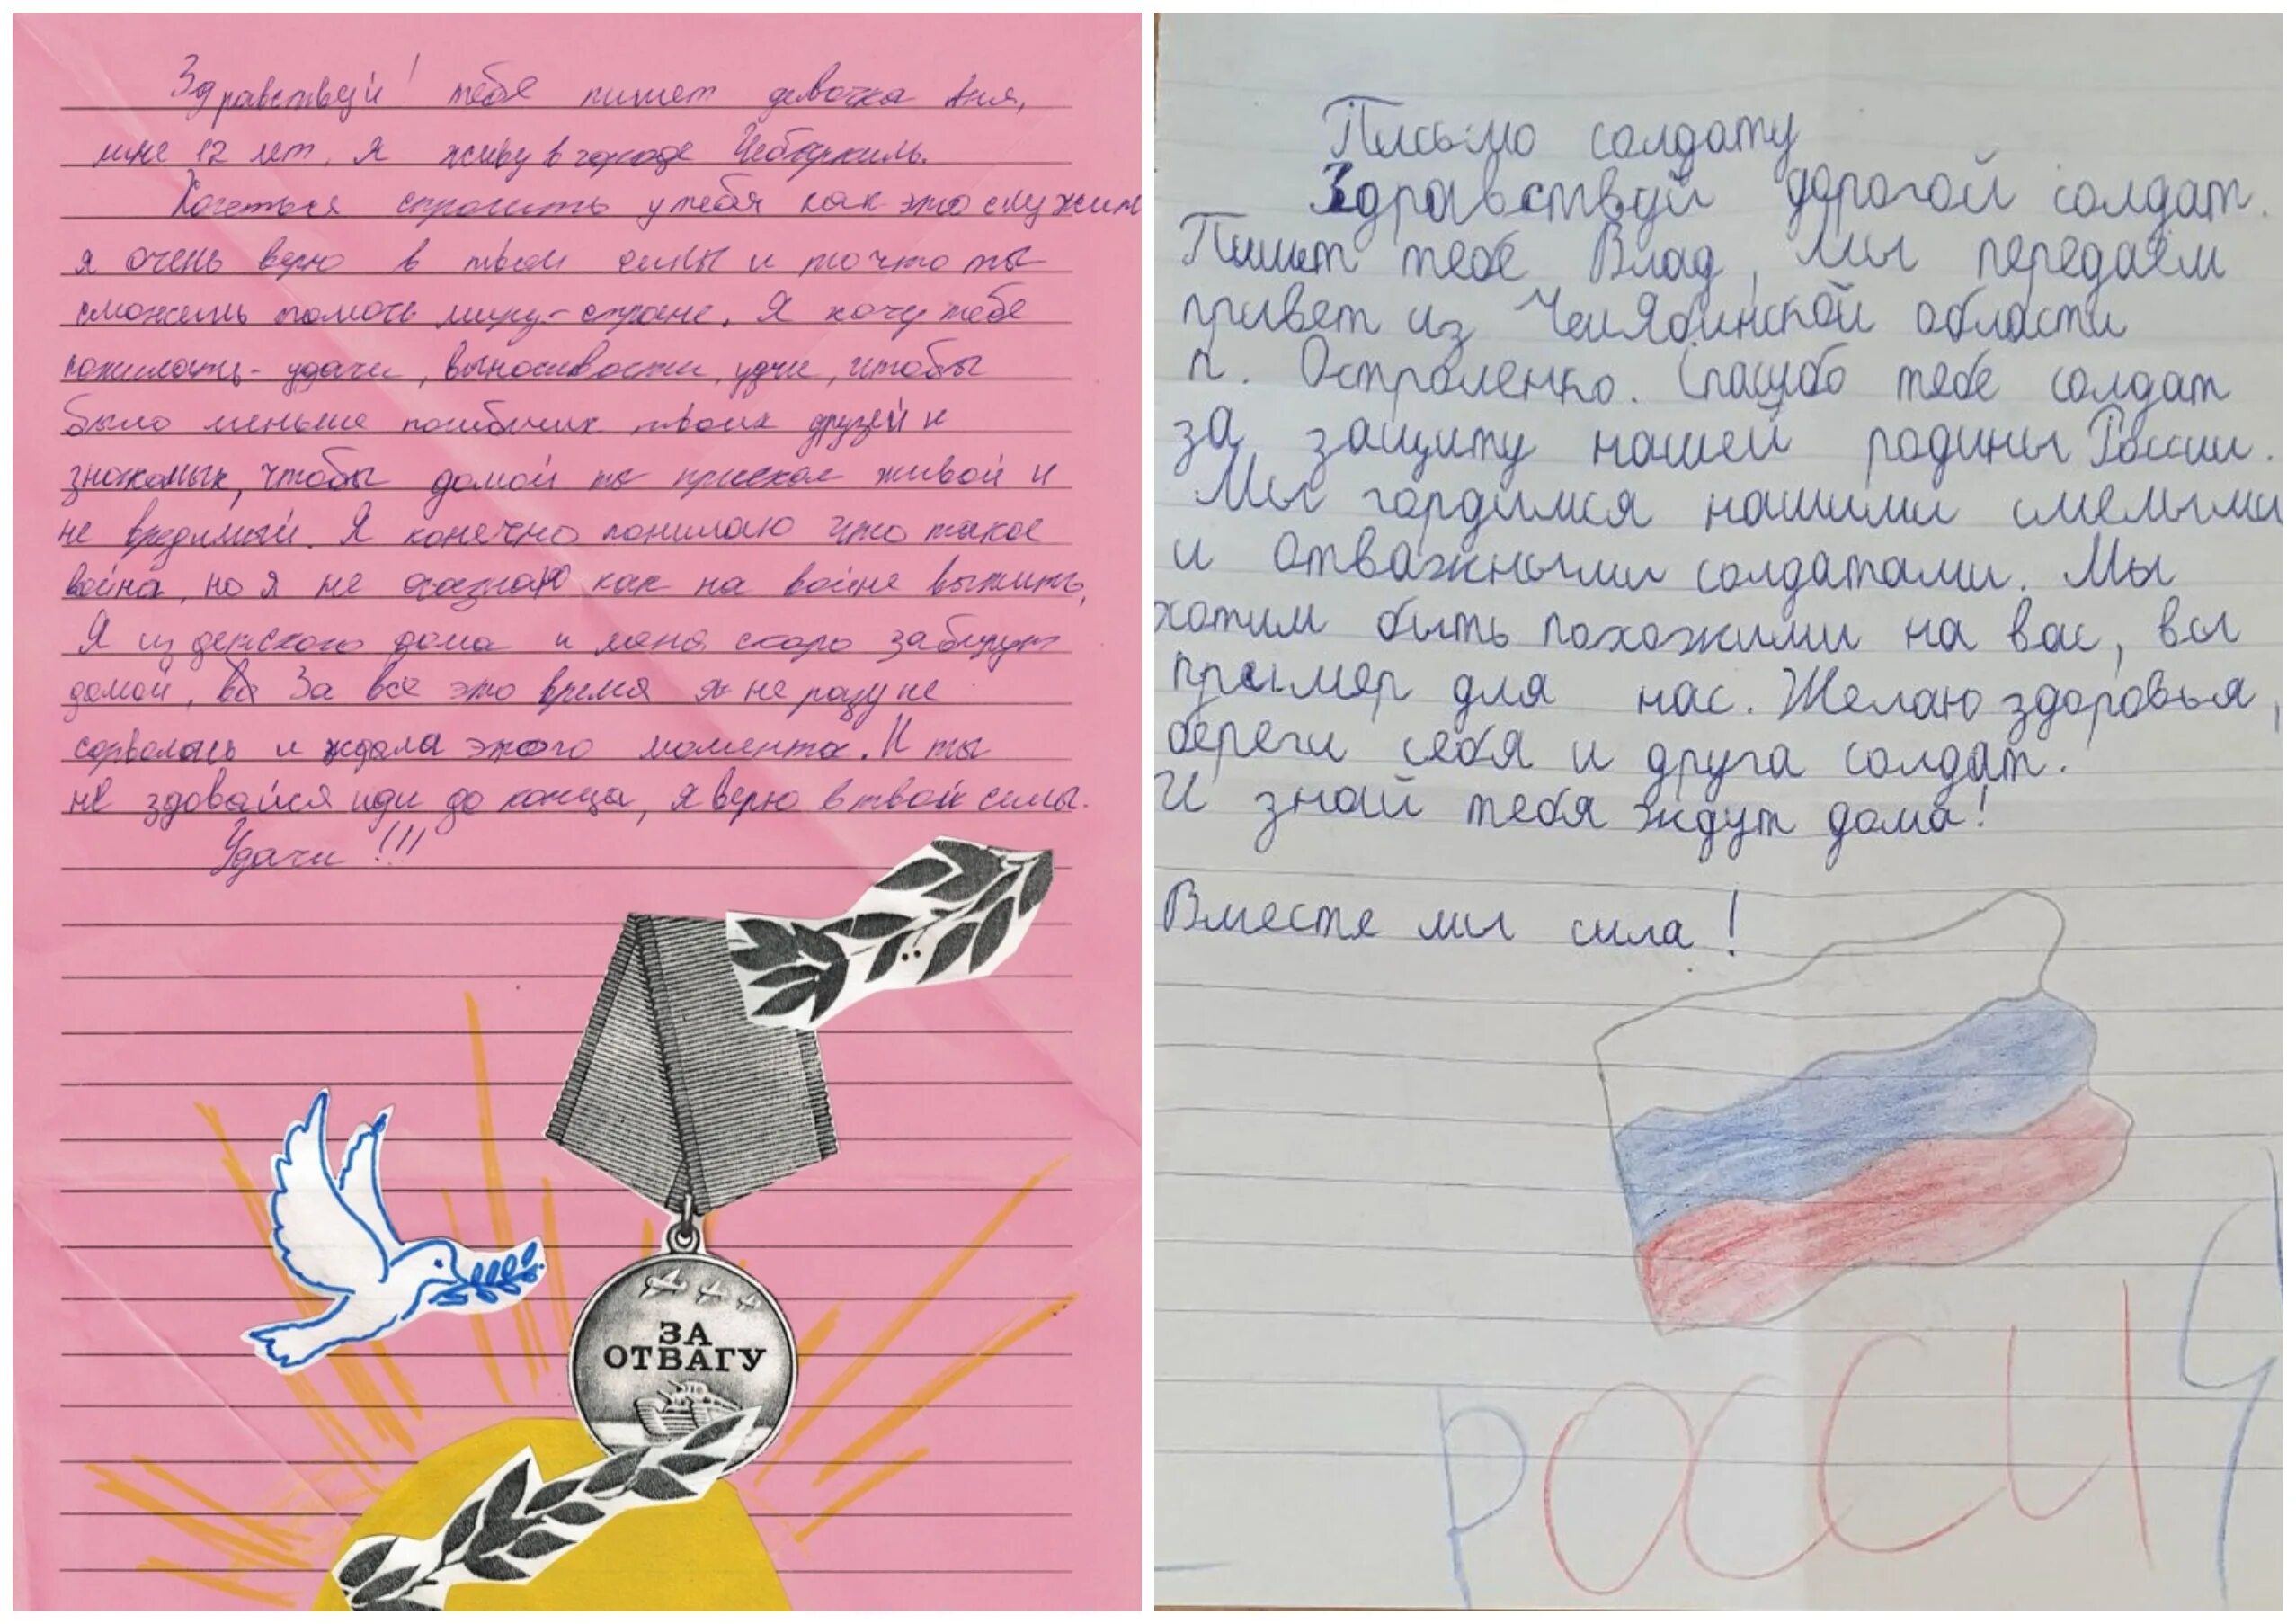 Здравствуй! тебе пишет девочка Аня,
мне 12 лет, я живу в городе Чебаркиль.
Хочеться спросить у тебя как это служит
я очень верю в твои силы и то что ты
сможешь помочь миру-стране. Я хочу тебе
пожилать- удачи, выносивости, удчи, чтобы
было меньше погибших твоих друзей и
знакомых, чтобы домой ты приехал живой и
не вредимый. Я конечно понимаю что такое
война, но я не знаю как на войне выжить,
Я из детского дома и меня скоро забирут
домой, За всё это время я не разу не
сорвалась и ждала этого момента. И ты
не здовайся иди до конца, я верю в твои силы.
Удачи!!!
ЗА
ОТВАГУ
Письмо солдату
Здравствуй дорогой солдат.
Пишет тебе Влад, Мы передаём
привет из Челябинской области
п. Остроленко. Спасибо тебе солдат
за защиту нашей родины России.
Мы гордимся нашими смелыми
и отважными солдатами. Мы
хотим быть похожими на вас, вы
пример для нас. Желаю здоровья,
береги себя и друга солдат.
И знай тебя ждут дома!
Вместе мы сила!
РОССИЯ